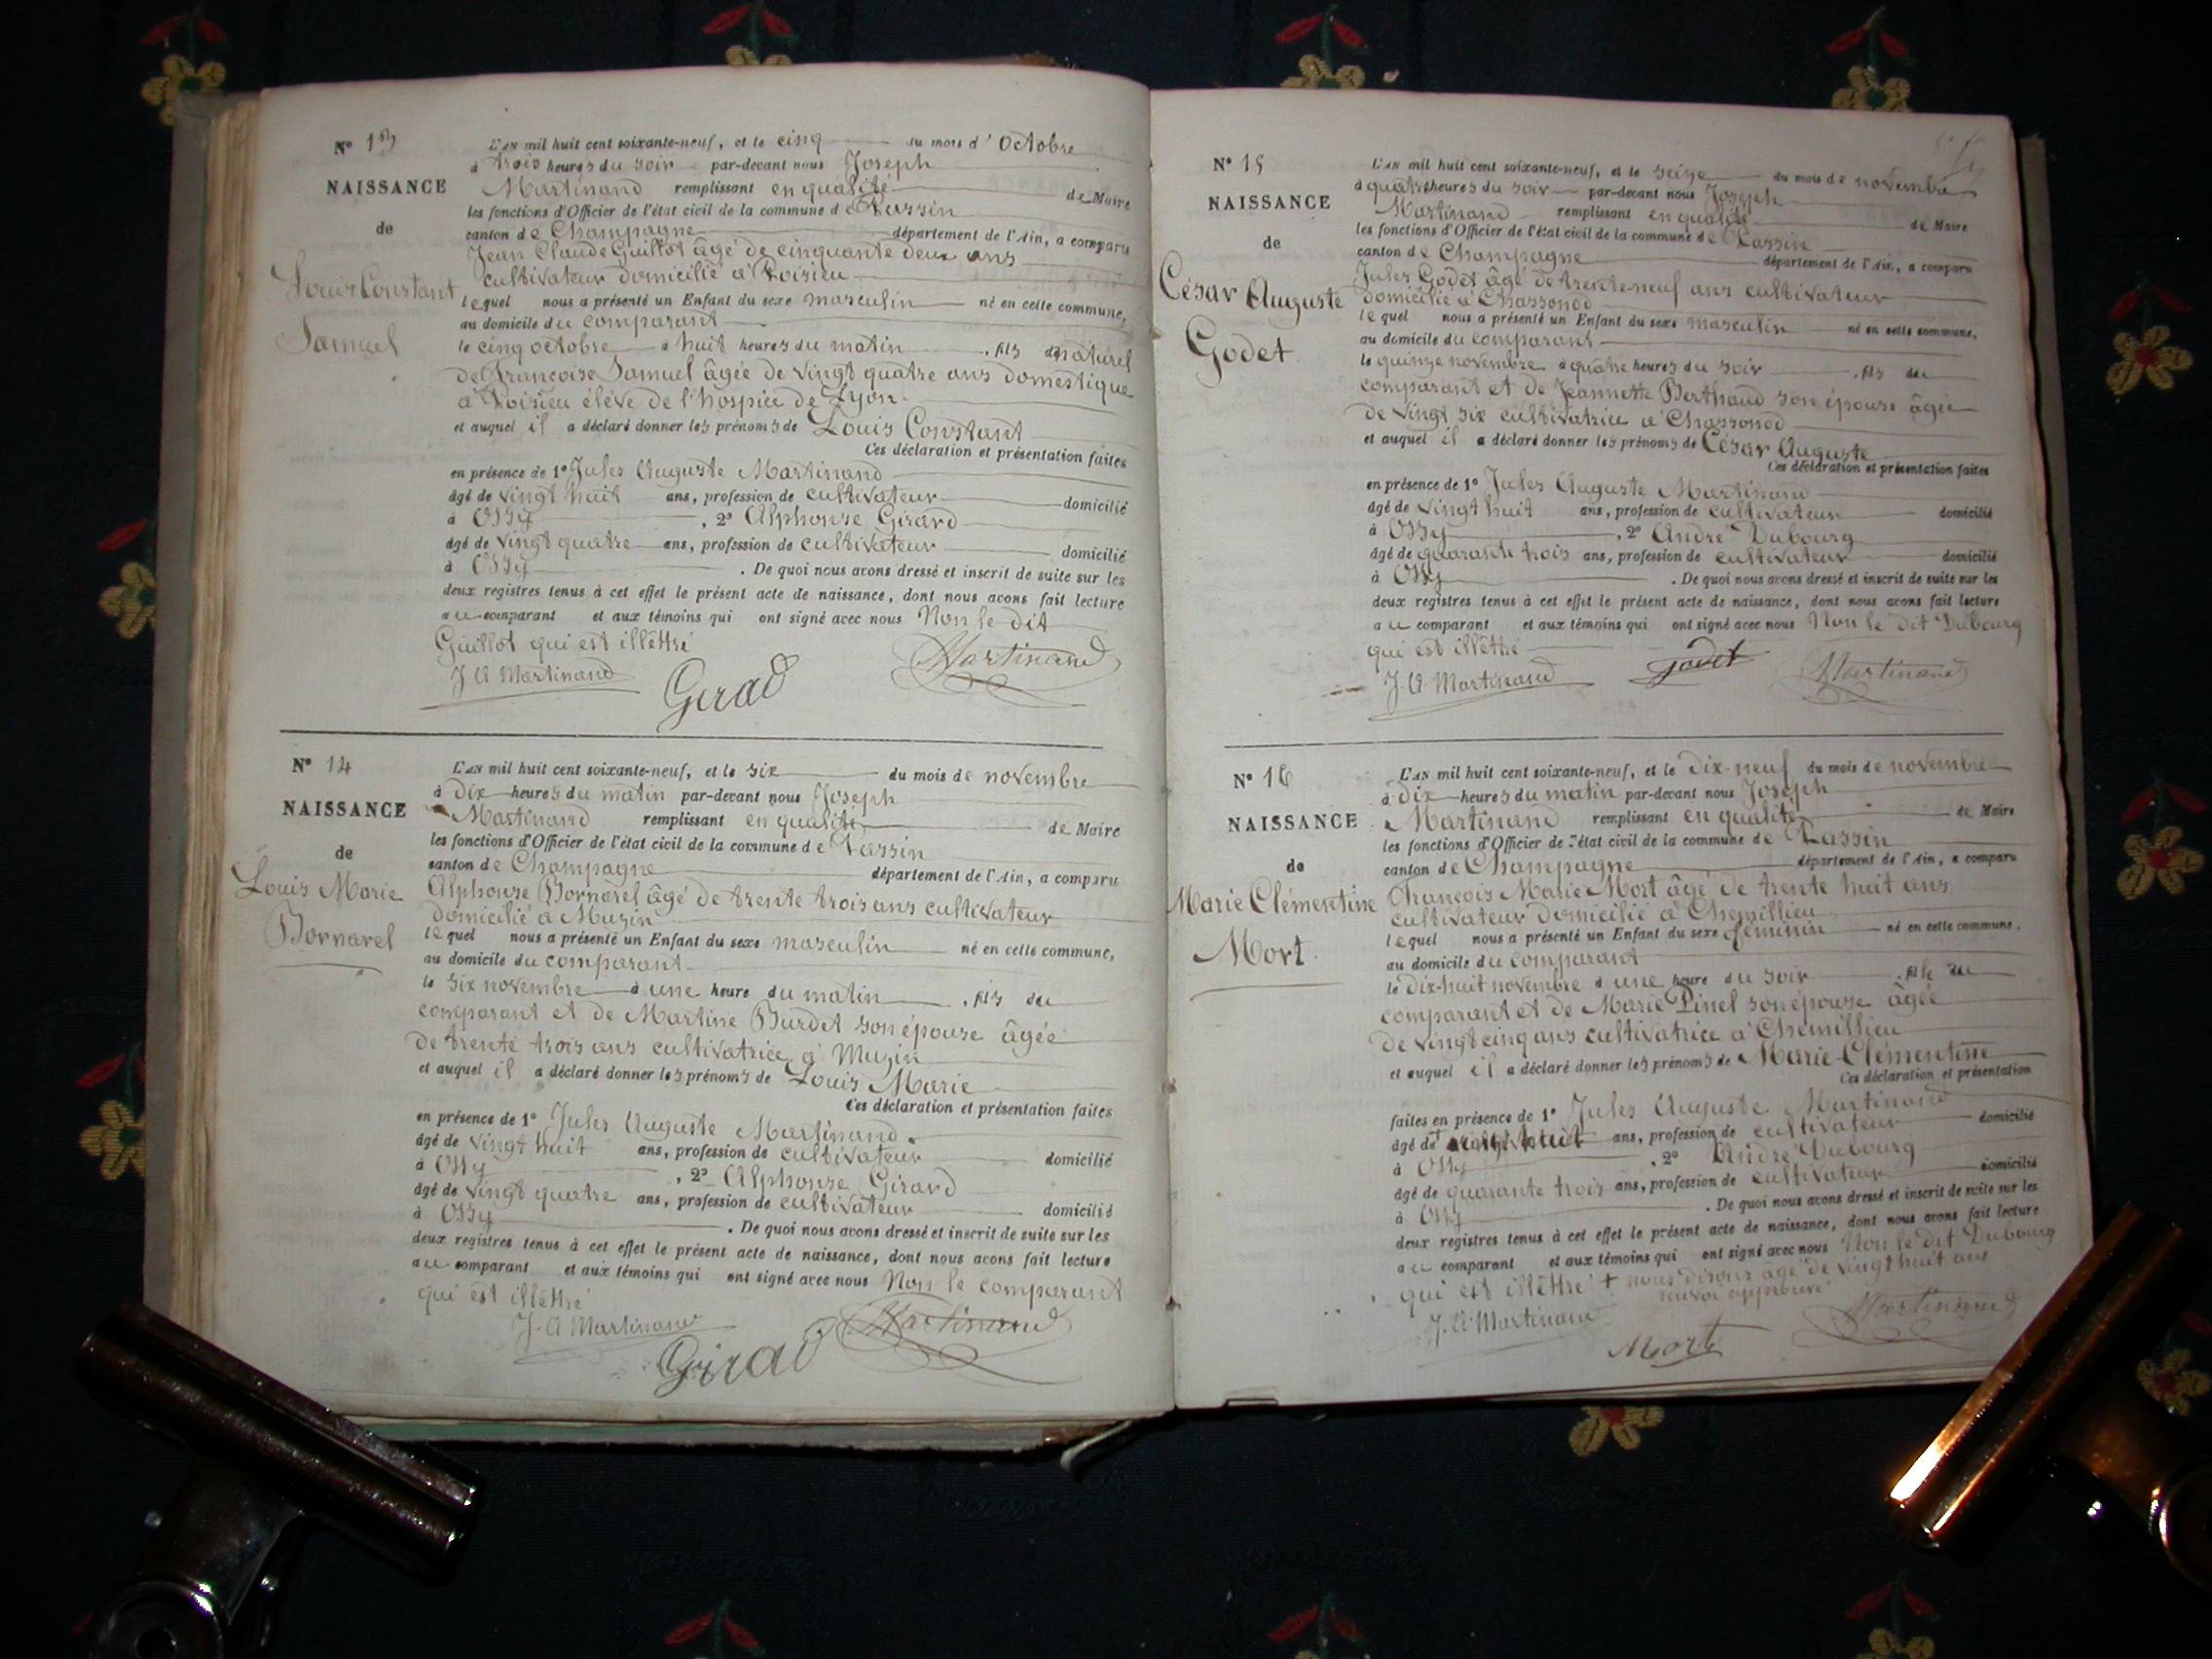 N° 13
NAISSANCE
de
Louis Constant
Samuel
L'AN mil huit cent soixante-neuf, et le cinq du mois d'Octobre
à trois heures du soir par-devant nous Joseph
Martinand remplissant en qualité de Maire
les fonctions d'Officier de l'état civil de la commune de Passin
canton de Champagne département de l'Ain, a comparu
Jean Claude Guillot âgé de cinquante deux ans
cultivateur domicilié à Poisieu
lequel nous a présenté un Enfant du sexe masculin né en cette commune,
au domicile du comparant
le cinq octobre à huit heures du matin, fils naturel
de Françoise Samuel âgée de vingt quatre ans domestique
à Poisieu élève de l'hospice de Lyon
et auquel il a déclaré donner les prénoms de Louis Constant
Ces déclaration et présentation faites
en présence de 1° Jules Auguste Martinand
âgé de vingt huit ans, profession de cultivateur domicilié
à Ossy, 2° Alphonse Girard
âgé de vingt quatre ans, profession de cultivateur domicilié
à Ossy. De quoi nous avons dressé et inscrit de suite sur les
deux registres tenus à cet effet le présent acte de naissance, dont nous avons fait lecture
au comparant et aux témoins qui ont signé avec nous Non le dit
Guillot qui est illêttré
J A Martinand Girad Martinand
N° 14
NAISSANCE
de
Louis Marie
Bornarel
L'AN mil huit cent soixante-neuf, et le six du mois de novembre
à dix heures du matin par-devant nous Joseph
Martinand remplissant en qualité de Maire
les fonctions d'Officier de l'état civil de la commune de Passin
canton de Champagne département de l'Ain, a comparu
Alphonse Bornarel âgé de trente trois ans cultivateur
domicilié à Muzin
lequel nous a présenté un Enfant du sexe masculin né en cette commune,
au domicile du comparant
le six novembre à une heure du matin, fils du
comparant et de Martine Burdet son épouse âgée
de trente trois ans cultivatrice à Muzin
et auquel il a déclaré donner les prénoms de Louis Marie
Ces déclaration et présentation faites
en présence de 1° Jules Auguste Martinand
âgé de vingt huit ans, profession de cultivateur domicilié
à Ossy, 2° Alphonse Girard
âgé de vingt quatre ans, profession de cultivateur domicilié
à Ossy. De quoi nous avons dressé et inscrit de suite sur les
deux registres tenus à cet effet le présent acte de naissance, dont nous avons fait lecture
au comparant et aux témoins qui ont signé avec nous Non le comparant
qui est illêttré
J. A Martinand Girad Martinand
N° 15
NAISSANCE
de
César Auguste
Godet
L'AN mil huit cent soixante-neuf, et le seize du mois de novembre
à quatre heures du soir par-devant nous Joseph
Martinand remplissant en qualité de Maire
les fonctions d'Officier de l'état civil de la commune de Passin
canton de Champagne département de l'Ain, a comparu
Jules Godet âgé de trente neuf ans cultivateur
domicilié à Chassonod
lequel nous a présenté un Enfant du sexe masculin né en cette commune,
au domicile du comparant
le quinze novembre à quatre heures du soir, fils du
comparant et de Jeannette Berthaud son épouse âgée
de vingt six cultivatrice à Chassonod
et auquel il a déclaré donner les prénoms de César Auguste
Ces déclaration et présentation faites
en présence de 1° Jules Auguste Martinand
âgé de vingt huit ans, profession de cultivateur domicilié
à Ossy, 2° André Dubourg
âgé de quarante trois ans, profession de cultivateur domicilié
à Ossy. De quoi nous avons dressé et inscrit de suite sur les
deux registres tenus à cet effet le présent acte de naissance, dont nous avons fait lecture
au comparant et aux témoins qui ont signé avec nous Non le dit Dubourg
qui est illêttré
J. A Martinand Godet Martinand
N° 16
NAISSANCE
de
Marie Clémentine
Mort
L'AN mil huit cent soixante-neuf, et le dix-neuf du mois de novembre
à dix heures du matin par-devant nous Joseph
Martinand remplissant en qualité de Maire
les fonctions d'Officier de l'état civil de la commune de Passin
canton de Champagne département de l'Ain, a comparu
François Marie Mort âgé de trente huit ans
cultivateur domicilié à Chemillieu
lequel nous a présenté un Enfant du sexe féminin né en cette commune,
au domicile du comparant
le dix-huit novembre à une heure du soir, fille du
comparant et de Marie Pinel son épouse âgée
de vingt cinq ans cultivatrice à Chemillieu
et auquel il a déclaré donner les prénoms de Marie Clémentine
Ces déclaration et présentation
faites en présence de 1° Jules Auguste Martinand
âgé de + vingt huit ans, profession de cultivateur domicilié
à Ossy, 2° André Dubourg
âgé de quarante trois ans, profession de cultivateur domicilié
à Ossy. De quoi nous avons dressé et inscrit de suite sur les
deux registres tenus à cet effet le présent acte de naissance, dont nous avons fait lecture
au comparant et aux témoins qui ont signé avec nous Non le dit Dubourg
qui est illêttré + nous disons âgé de vingt huit ans
renvoi approuvé
J. A Martinand Mort Martinand